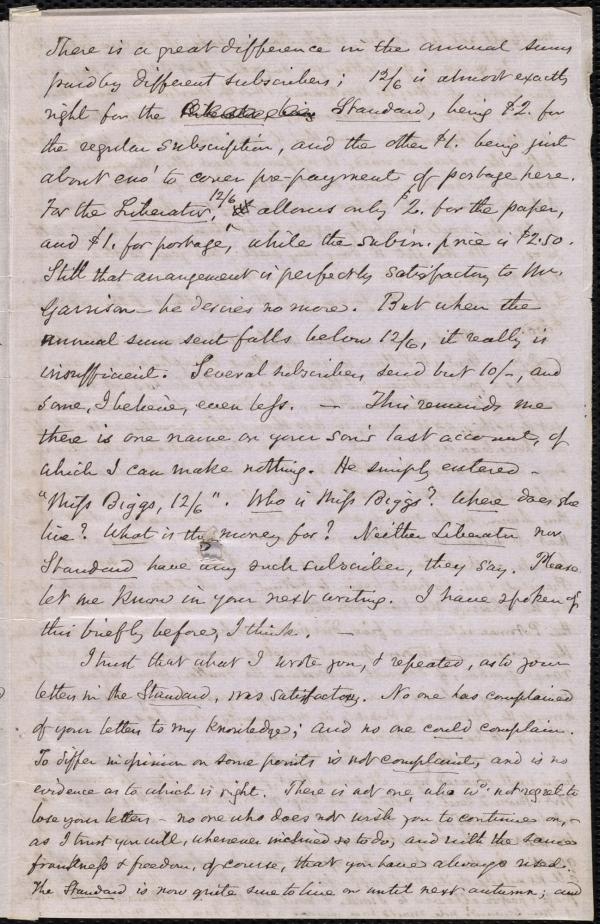 There is a great difference in the annual sums
paid by different subscribers; 12/6 is almost exactly
right for the Standard, being $2. for
the regular subscription, and the other $1. being just
about eno' to cover pre-payment of postage here.
For the Liberator, 12/6 allows only $2. for the paper,
and $1. for postage, while the subscn. price is $2.50.
Still that arrangement is perfectly satisfactory to Mr.
Garrison – he desires no more. But when the
annual sum sent falls below 12/6, it really is
insufficient. Several subscribers send but 10/-, and
some, I believe, even less. — This reminds me
there is one name on your son's last account, of
which I can make nothing. He simply entered –
"Miss Biggs, 12/6". Who is Miss Biggs? Where does she
live? What is the money for? Neither Liberator nor
Standard have any such subscriber, they say. Please
let me know in your next writing. I have spoken of
this briefly before, I think. —
I trust that what I wrote you, & repeated, as to your
letters in the Standard, was satisfactory. No one has complained
of your letters to my knowledge; and no one could complain.
To differ in opinion on some points is not complaint, and is no
evidence as to which is right. There is not one, who wd. not regret to
lose your letters – no one who does not wish you to continue on, –
as I trust you will, whenever inclined so to do, and with the same
frankness & freedom, of course, that you have always used.
The Standard is now quite sure to live on until next autumn; and